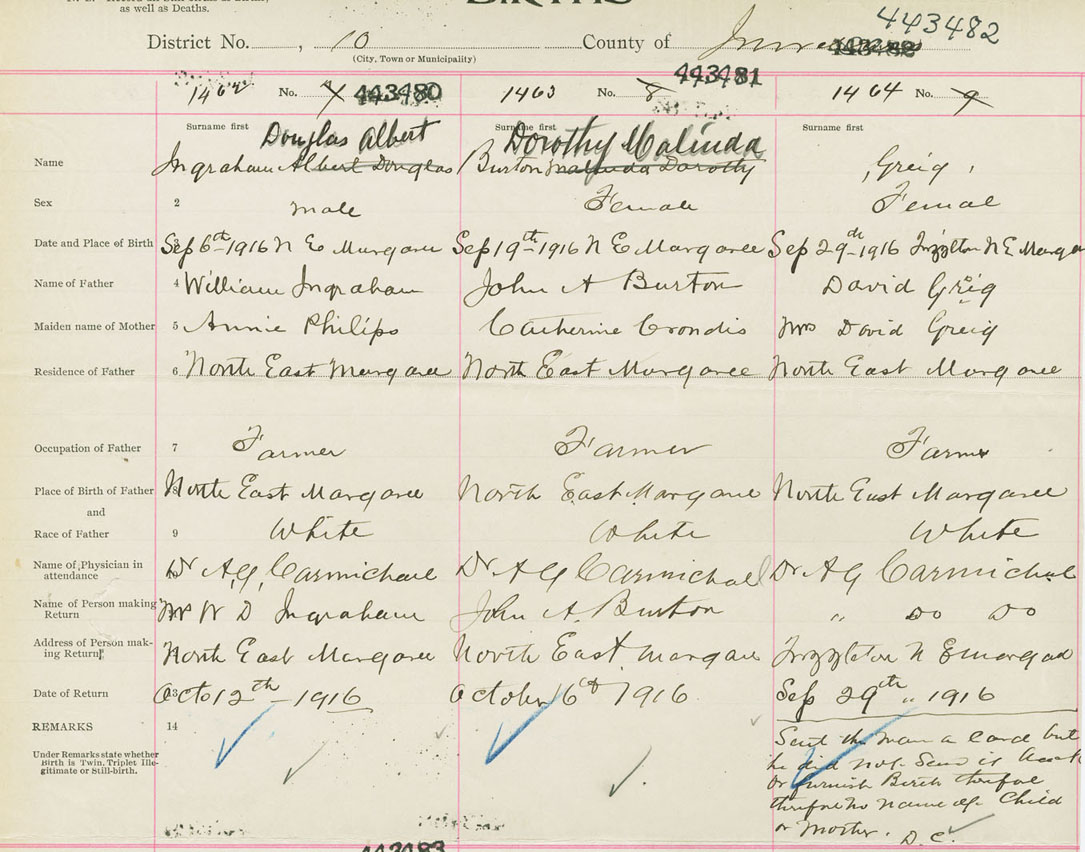 as well as Deaths.
BIRTHS
443482
District No. , 10 County of
(City, Town or Municipality)
443481
1462 No. 7 443480 1463 No. 8 1464 No. 9
Surname first Surname first Surname first
Douglas Albert Dorothy Malinda
Name Ingraham Albert Douglas Burton Malinda Dorothy , Greig ,
Sex 2 male Female Femal
Date and Place of Birth Sep 6th 1916 N E Margaree Sep 19th 1916 N E Margaree Sep 29th 1916 N E
Name of Father 4 William Ingraham John A Burton David Greig
Maiden name of Mother 5 Annie Philips Catherine Crondis Mrs David Greig
Residence of Father 6 North East Margaree North East Margaree North East Margaree
Occupation of Father 7 Farmer Farmer Farme
Place of Birth of Father 8 North East Margaree North East Margaree North East Margaree
and
Race of Father 9 White White White
Name of Physician in
attendance Dr A, G, Carmichael Dr A G Carmichael Dr A G Carmichel
Name of Person making
Return Mrs W D Ingraham John A. Burton " Do Do
Address of Person mak-
ing Return North East Margaree North East Margaree N E
Date of Return 13 Octo 12th 1916 October 6th 1916 Sep 29th 1916
REMARKS 14
Under Remarks state whether
Birth is Twin, Triplet Ille-
gitimate or Still-birth.
Sent the man a Card but
he did not Send it back
or furnish Birth therfore
therfore no name of Child
or Mother. D. C.
443483